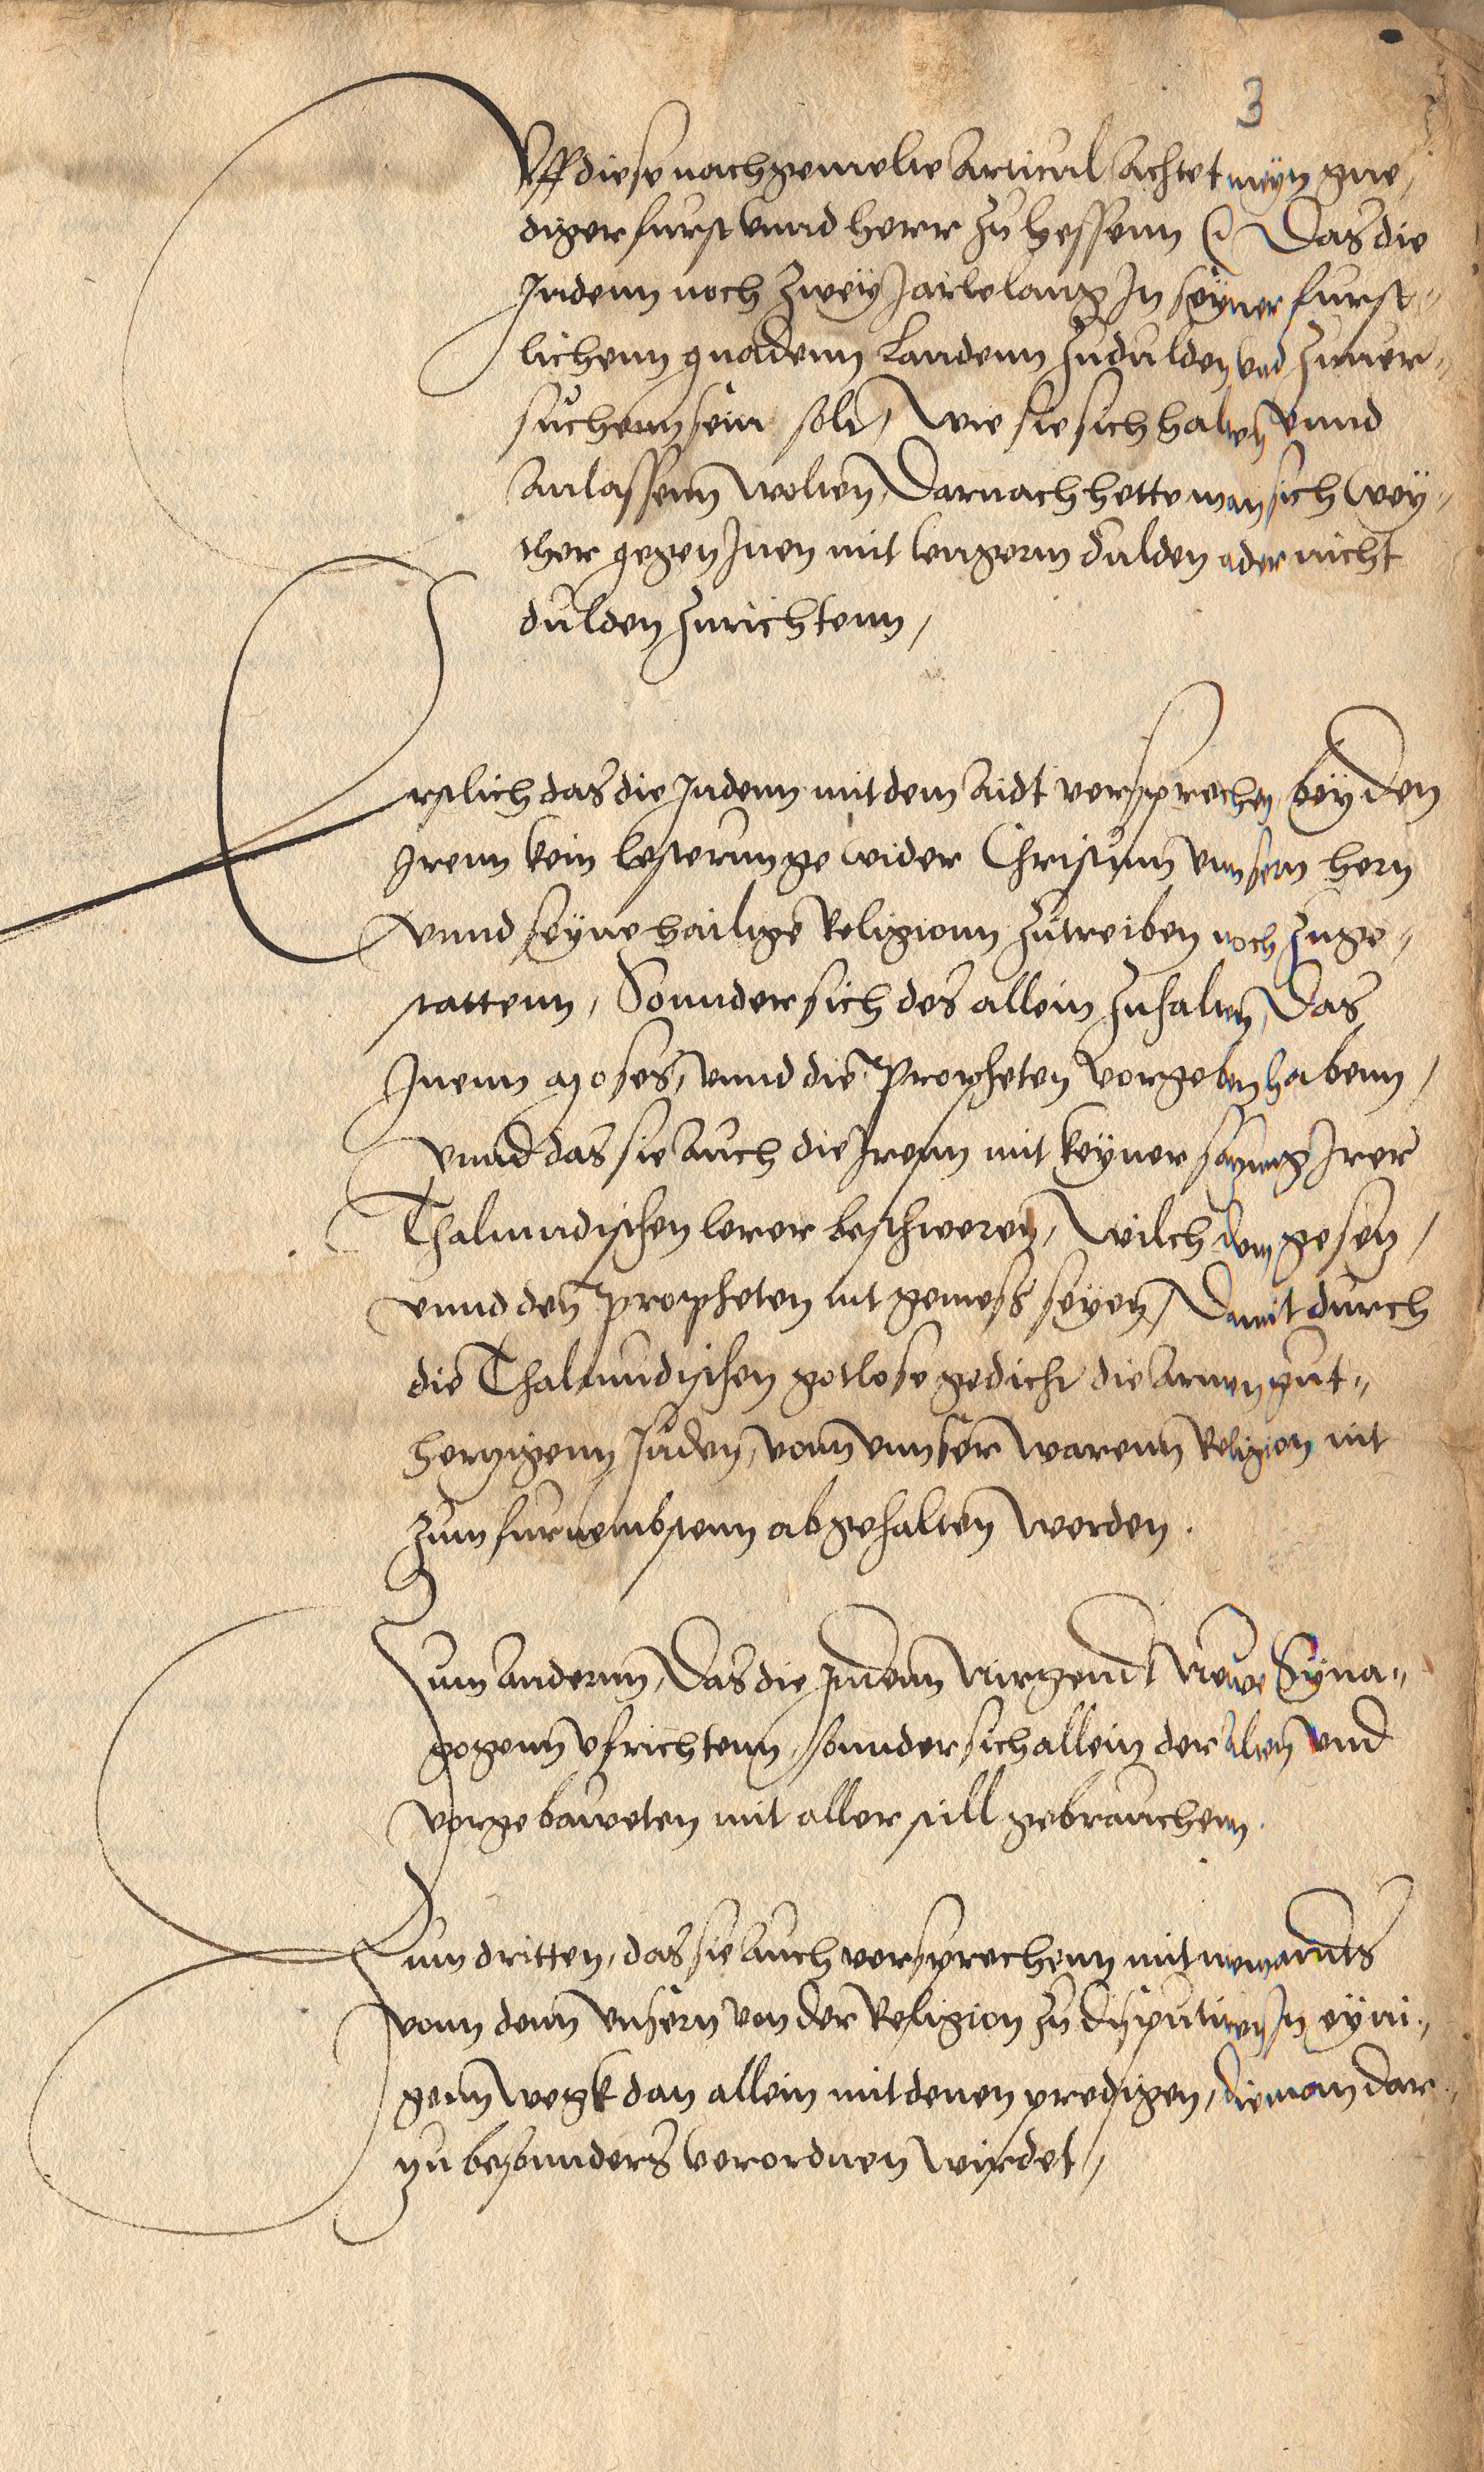 3
Vff diese nachgemelte Articul achtet meyn gne,
diger furst vnnd herr zu hessenn (etc) Das die
Judenn noch zwey Jarlelang In seyner furst„
lichenn gnadenn Landenn zudulden vnd zuuer„
suchenn sein solt, wie sie sich halten vnnd
anlassenn wolten, Darnach hette man sich wey„
ther gegen Inen mit lengerm dulden ader nicht
dulden zurichtenn,
Erstlich das die Judenn mit dem Aidt versprechen, bey den
Irenn kein lesterunge wider Christum vnnsern hern
vnnd seyne hailige Religionn zutreiben noch zuge„
stattenn, Sonnder sich des allein zuhalten, Das
Inenn Moses, vnnd die Propheten vorgeben habenn,
vnnd das sie auch die Irenn mit keyner satzung Irer
Thalmudischen lerer beschweren, wilch dem gesetz,
vnnd den Propheten nit gemess seyen, Damit durch
die Thalmudischen gotlose gedicht die armen gut„
hertzigenn Juden, vonn vnnser warenn Religion nit
zum furnembstenn abgehalten werden.
Zum andernn, Das die Judenn Nirgendt Neuwe Syna„
gogenn vfrichtenn, sonnder sich allein der alten vnd
vorgebauweten mit aller still gebrauchenn.
Zum dritten, das sie auch versprechenn mit nymandts
vonn denn vnsern von der Religion zu disputiren In eyni„
genn wegk dan allein mit denen predigen, die man dar„
zu besonnders verordnen wirdet,